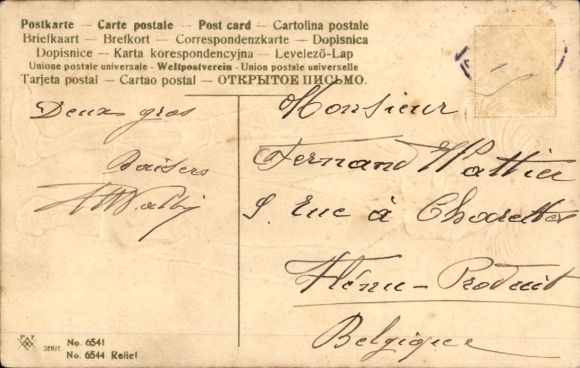 Postkarte — Carte postale — Post card — Cartolina postale
Briefkaart — Brefkort — Correspondenzkarte — Dopisnica
Dopisnice — Karta korespondencyjna — Levelező-Lap
Unione postale universale - Weltpostverein - Union postale universelle
Tarjeta postal — Cartao postal — ОТКРЫТОЕ ПИСЬМО.
Deux gros
Baisers
Monsieur
Fernand Wattier
à
Belgique
SERIE No. 6541
No. 6544 Relief